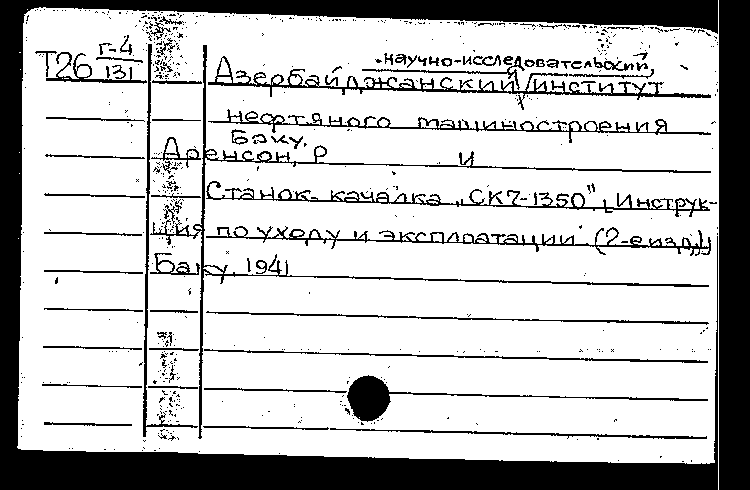 Т26 г-4/131
научно-исследовательский,
Азербайджанский институт
нефтяного машиностроения
Баку.
Аренсон, Р и
Станок-качалка „СК7-1350" [Инструк-
ция по уходу и эксплоатации. (2-е изд.)]
Баку, 1941